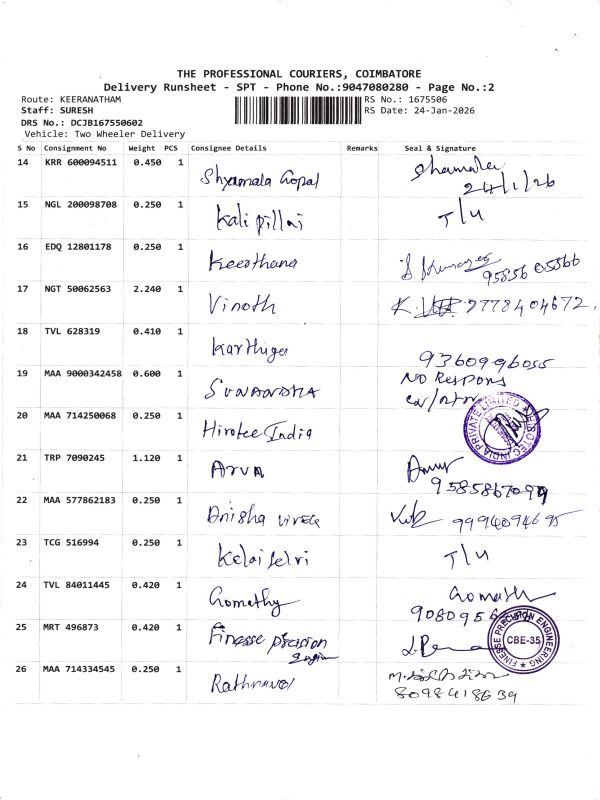 THE PROFESSIONAL COURIERS, COIMBATORE
Delivery Runsheet - SPT - Phone No.:9047080280 - Page No.:2
Route: KEERANATHAM RS No.: 1675506
Staff: SURESH RS Date: 24-Jan-2026
DRS No.: DCJB167550602
Vehicle: Two Wheeler Delivery
S No Consignment No Weight PCS Consignee Details Remarks Seal & Signature
14 KRR 600094511 0.450 1 Shyamala Gopal Shamala
24/1/26
15 NGL 200098708 0.250 1 Kali pillai T/U
16 EDQ 12801178 0.250 1 Keerthana
17 NGT 50062563 2.240 1 Vinoth 9778404672.
18 TVL 628319 0.410 1 9360996055
19 MAA 9000342458 0.600 1 No Respons
20 MAA 714250068 0.250 1 India
21 TRP 7090245 1.120 1 Arun
22 MAA 577862183 0.250 1 Anisha 9994094695
23 TCG 516994 0.250 1 Kalai selvi T/U
24 TVL 84011445 0.420 1 Gomathy Gomath
25 MRT 496873 0.420 1 Finesse FINESSE PRECISION ENGINEERING CBE-35
26 MAA 714334545 0.250 1 Rathnavel
8098418639